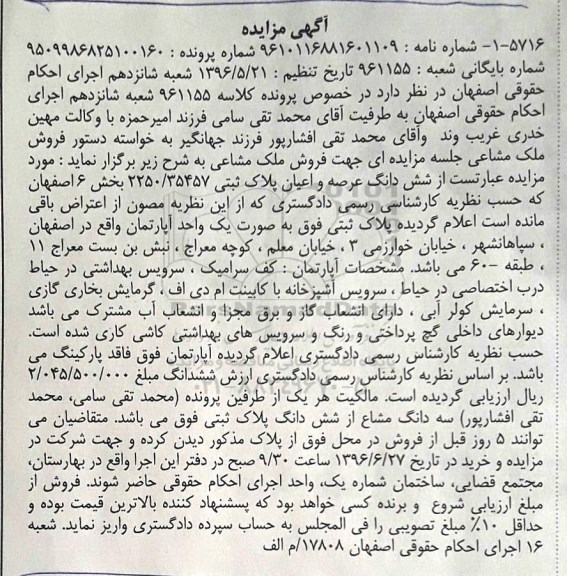 آگهی مزایده
۱-۵۷۱۶- شماره نامه : ۹۶۱۰۱۱۶۸۸۱۶۰۱۱۰۹ شماره پرونده : ۹۵۰۹۹۸۶۸۲۵۱۰۰۱۶۰
شماره بایگانی شعبه : ۹۶۱۱۵۵ تاریخ تنظیم : ۱۳۹۶/۵/۲۱ شعبه شانزدهم اجرای احکام
حقوقی اصفهان در نظر دارد در خصوص پرونده کلاسه ۹۶۱۱۵۵ شعبه شانزدهم اجرای
احکام حقوقی اصفهان به طرفیت آقای محمد تقی سامی فرزند امیرحمزه با وکالت مهین
خدری غریب وند وآقای محمد تقی افشارپور فرزند جهانگیر به خواسته دستور فروش
ملک مشاعی جلسه مزایده ای جهت فروش ملک مشاعی به شرح زیر برگزار نماید : مورد
مزایده عبارتست از شش دانگ عرصه و اعیان پلاک ثبتی ۲۲۵۰/۳۵۴۵۷ بخش ۶ اصفهان
که حسب نظریه کارشناسی رسمی دادگستری که از این نظریه مصون از اعتراض باقی
مانده است اعلام گردیده پلاک ثبتی فوق به صورت یک واحد آپارتمان واقع در اصفهان
، سپاهانشهر ، خیابان خوارزمی ۳ ، خیابان معلم ، کوچه معراج ، نبش بن بست معراج ۱۱
، طبقه -۶۰ می باشد. مشخصات آپارتمان : کف سرامیک ، سرویس بهداشتی در حیاط
درب اختصاصی در حیاط ، سرویس آشپزخانه با کابینت ام دی اف ، گرمایش بخاری گازی
، سرمایش کولر آبی ، دارای انشعاب گاز و برق مجزا و انشعاب آب مشترک می باشد
دیوارهای داخلی گچ پرداختی و رنگ و سرویس های بهداشتی کاشی کاری شده است.
حسب نظریه کارشناس رسمی دادگستری اعلام گردیده آپارتمان فوق فاقد پارکینگ می
باشد. بر اساس نظریه کارشناس رسمی دادگستری ارزش ششدانگ مبلغ ۲/۰۴۵/۵۰۰/۰۰۰
ریال ارزیابی گردیده است. مالکیت هر یک از طرفین پرونده (محمد تقی سامی، محمد
تقی افشارپور) سه دانگ مشاع از شش دانگ پلاک ثبتی فوق می باشد. متقاضیان می
توانند ۵ روز قبل از فروش در محل فوق از پلاک مذکور دیدن کرده و جهت شرکت در
مزایده و خرید در تاریخ ۱۳۹۶/۶/۲۷ ساعت ۹/۳۰ صبح در دفتر این اجرا واقع در بهارستان،
مجتمع قضایی، ساختمان شماره یک، واحد اجرای احکام حقوقی حاضر شوند. فروش از
مبلغ ارزیابی شروع و برنده کسی خواهد بود که پسشنهاد کننده بالاترین قیمت بوده و
حداقل ۱۰٪ مبلغ تصویبی را فی المجلس به حساب سپرده دادگستری واریز نماید. شعبه
۱۶ اجرای احکام حقوقی اصفهان ۱۷۸۰۸/م الف